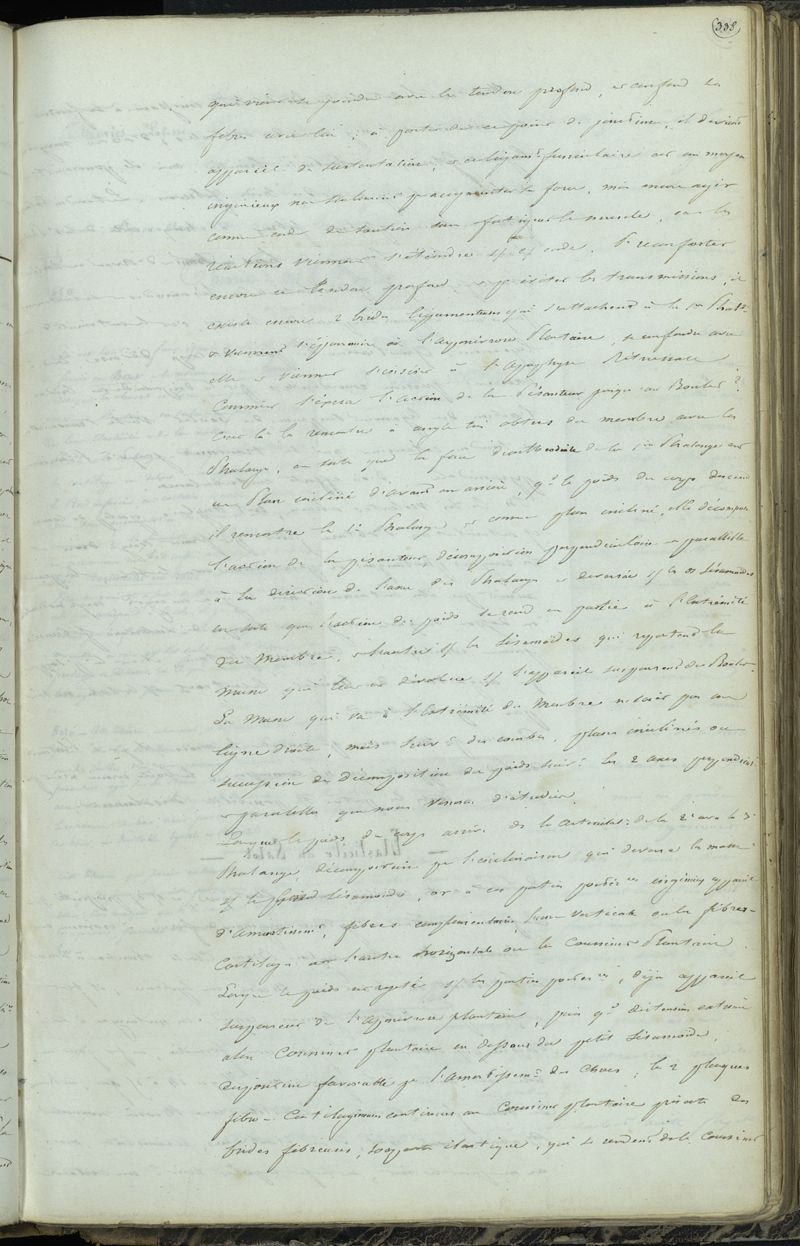 335
qui vient se joindre avec le tendon profond, et confond ses
fibres avec lui ; à partir de ce point de jonction, il devient
appareil de sustentation, et ce ligamt funiculaire est un moyen
ingénieux non seulement pr augmenter la force, mais encore agir
comme corde de soutien sans fatiguer le muscle, car les
réactions viennent s'éteindre sr cette corde. Pr reconforter
encore ce tendon profond, et pr éviter les transmissions, il
existe encore 2 brides ligamenteuses qui s'attachent à la 1re Phal.
& viennent s'épanouir sr l'aponévrose Plantaire, se confondre avec
elle et viennent s'insérer à l'apophyse Rétrossale
Comment s'opère l'action de la Pésanteur jusqu'au Boulet ?
C'est là la rencontre à angle très obtus du membre avec les
Phalanges, en sorte que la force droite de la 1re Phalange est
un Plan incliné d'avant en arrière, qd le poids du corps descend
il rencontre la 1re Phalange et comme plan incliné elle décompose
l'action de la pésanteur, décomposition perpendiculaire et parallèle
à la direction de l'axe des Phalanges et deversée sr les gds Sésamoïdes
en sorte que l'action du poids se rend en partie à l'extrémité
du Membre, et l'autre sr les Sésamoïdes qui reportent la
Masse qui leur est dévolue sr l'appareil suspenseur du Boulet.
La Masse qui va à l'extrémité du Membre ne suit pas une
ligne droite, mais suit des courbes, plans inclinés ou
succession de décomposition du poids suivt les 2 axes perpendicul.
& parallèles que nous venons d'étudier.
Lorsque le poids du corps arrive de la articulatn de la 2e avec la 3e
Phalange, décomposition pr l'inclinaison qui deverse la masse
sr le petit Sésamoïde, or à ces parties postérres ingénieux appareil
d'Amortissemt, fibres complémentaires, l'une verticale ou la fibro-
Cartilage et l'autre horizontale ou le Coussinet Plantaire.
Lorsque le poids est rejeté sr les parties postérres, déjà appareil
suspenseur de l'aponévrose plantaire, puis qd distension extrême
alors Coussinet plantaire en dessous du petit Sésamoïde,
disposition favorable pr l'Amortissemt des chocs, les 2 plaques
fibro-Cartilagineuses continues au Coussinet plantaire présente des
brides fibreuses, élastique, qui se rendent de la Coussinet